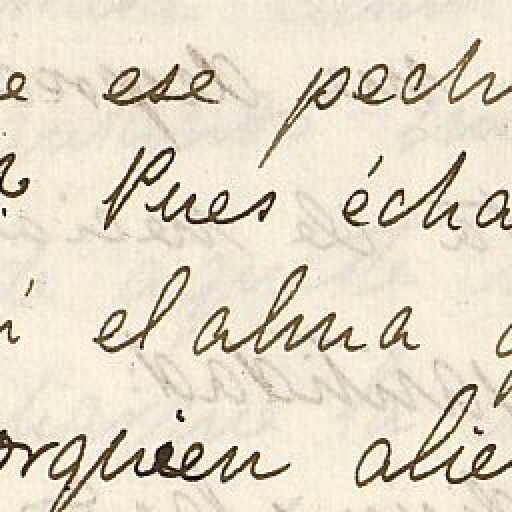 e ese pech
? Pues écha
í el alma g
orquien alie